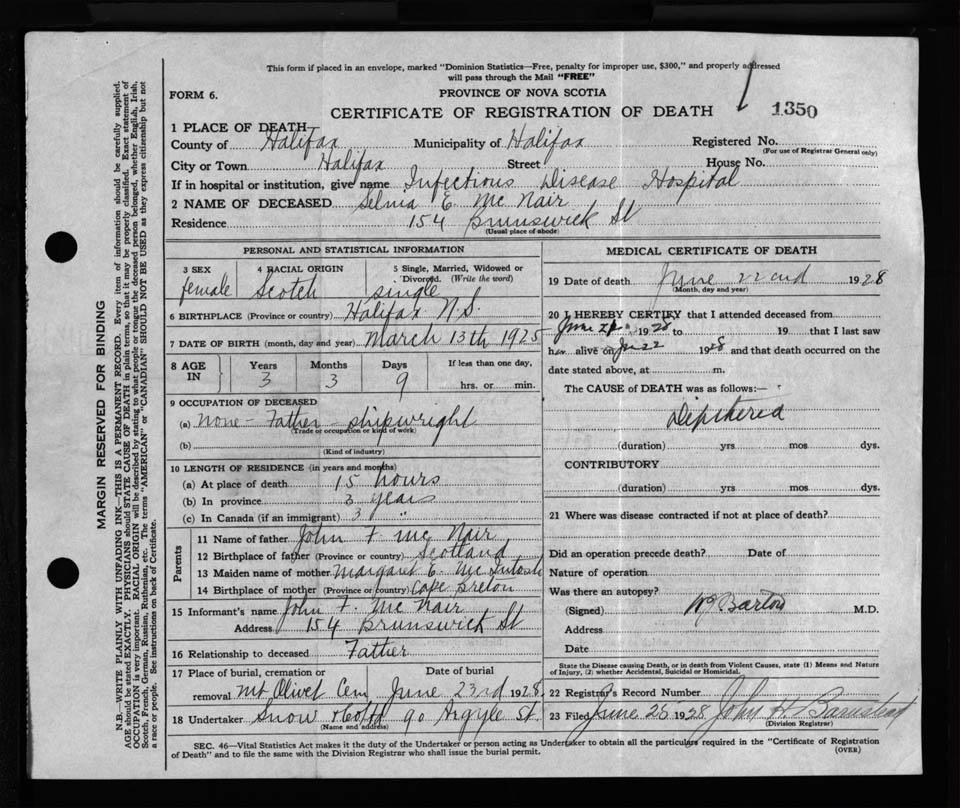 This form if placed in an envelope, marked "Dominion Statistics—Free, penalty for improper use, $300," and properly addressed
will pass through the Mail "FREE"
FORM 6.
PROVINCE OF NOVA SCOTIA
CERTIFICATE OF REGISTRATION OF DEATH
1350
1 PLACE OF DEATH
County of Halifax Municipality of Halifax Registered No.
(For use of Registrar General only)
City or Town Halifax Street House No.
If in hospital or institution, give name Infectious Disease Hospital
2 NAME OF DECEASED Selma E. Mc Nair
Residence 154 Brunswick St
(Usual place of abode)
PERSONAL AND STATISTICAL INFORMATION
3 SEX 4 RACIAL ORIGIN 5 Single, Married, Widowed or
Divorced. (Write the word)
female Scotch single
6 BIRTHPLACE (Province or country) Halifax N.S.
7 DATE OF BIRTH (month, day and year) March 13th 1925
8 AGE IN Years Months Days If less than one day,
3 3 9 hrs. or min.
9 OCCUPATION OF DECEASED
(a) none - Father - shipwright
(Trade or occupation or kind of work)
(b)
(Kind of industry)
10 LENGTH OF RESIDENCE (in years and months)
(a) At place of death 15 hours
(b) In province 3 years
(c) In Canada (if an immigrant) 3 "
Parents
11 Name of father John F. Mc Nair
12 Birthplace of father (Province or country) Scotland
13 Maiden name of mother Margaret E. Mc Intosh
14 Birthplace of mother (Province or country) Cape Breton
15 Informant's name John F. Mc Nair
Address 154 Brunswick St
16 Relationship to deceased Father
17 Place of burial, cremation or Date of burial
removal Mt Olivet Cem June 23rd 1928
18 Undertaker Snow & Co Ltd 90 Argyle St.
(Name and address)
MEDICAL CERTIFICATE OF DEATH
19 Date of death June 22nd 1928
(Month, day and year)
20 I HEREBY CERTIFY that I attended deceased from
June 1928 to 19 that I last saw
her alive on Jun 22 1928 and that death occurred on the
date stated above, at m.
The CAUSE of DEATH was as follows:—
Diptheria
(duration) yrs mos dys.
CONTRIBUTORY
(duration) yrs mos dys.
21 Where was disease contracted if not at place of death?
Did an operation precede death? Date of
Nature of operation
Was there an autopsy?
(Signed) Barton M.D.
Address
Date
State the Disease causing Death, or in death from Violent Causes, state (1) Means and Nature
of Injury, (2) whether Accidental, Suicidal or Homicidal.
22 Registrar's Record Number
23 Filed June 25 1928 John H. Barnstead
(Division Registrar)
SEC. 46—Vital Statistics Act makes it the duty of the Undertaker or person acting as Undertaker to obtain all the particulars required in the "Certificate of Registration
of Death" and to file the same with the Division Registrar who shall issue the burial permit.
(OVER)
MARGIN RESERVED FOR BINDING
N.B.—WRITE PLAINLY WITH UNFADING INK—THIS IS A PERMANENT RECORD. Every item of information should be carefully supplied.
AGE should be stated EXACTLY. PHYSICIANS should STATE CAUSE OF DEATH in plain terms, so that it may be properly classified. Exact statement of
OCCUPATION is very important. RACIAL ORIGIN will be described by stating to what people or tongue the deceased person belonged, whether English, Irish,
Scotch, French, German, Russian, Ruthenian, etc. The terms "AMERICAN" or "CANADIAN" SHOULD NOT BE USED as they express citizenship but not
a race or people. See instructions on back of Certificate.